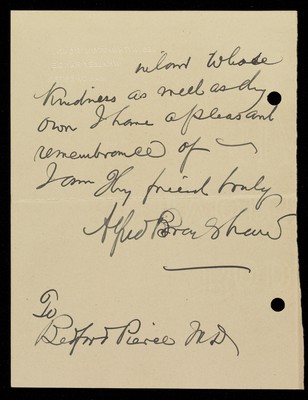 whose
kindness as well as thy
own I have a pleasant
remembrance of
I am thy friend truly
Alfred Kemp Brown Shaw
To
Bedford Pierce M.D.